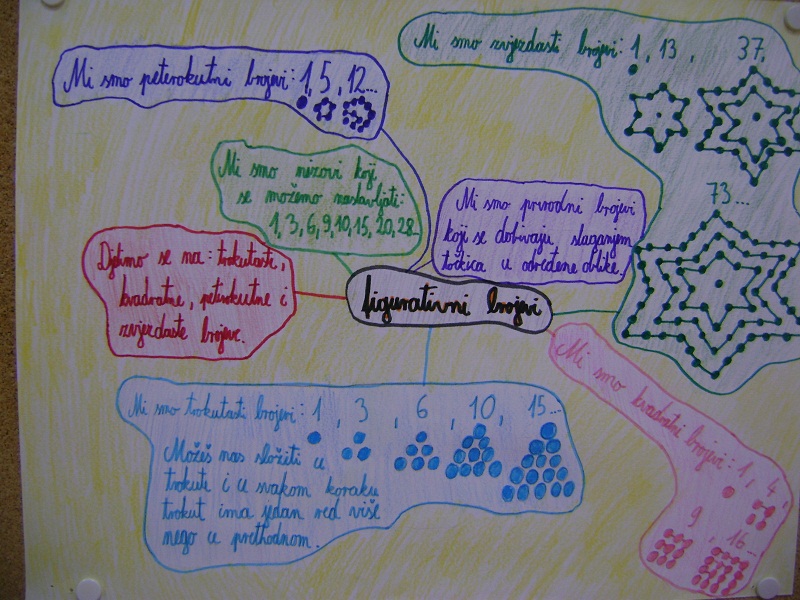 Mi smo peterokutni brojevi: 1, 5, 12...
Mi smo zvjezdasti brojevi: 1, 13, 37,
73...
Mi smo nizovi koji
se možemo nastavljati:
1, 3, 6, 9, 10, 15, 20, 28...
Mi smo prirodni brojevi
koji se dobivaju slaganjem
točkica u određene oblike.
Djelimo se na: trokutaste,
kvadratne, petrokutne i
zvjezdaste brojeve.
figurativni brojevi
Mi smo trokutasti brojevi: 1, 3, 6, 10, 15...
Možeš nas složiti u
trokute i u svakom koraku
trokut ima jedan red više
nego u prethodnom.
Mi smo kvadratni brojevi: 1, 4,
9, 16...